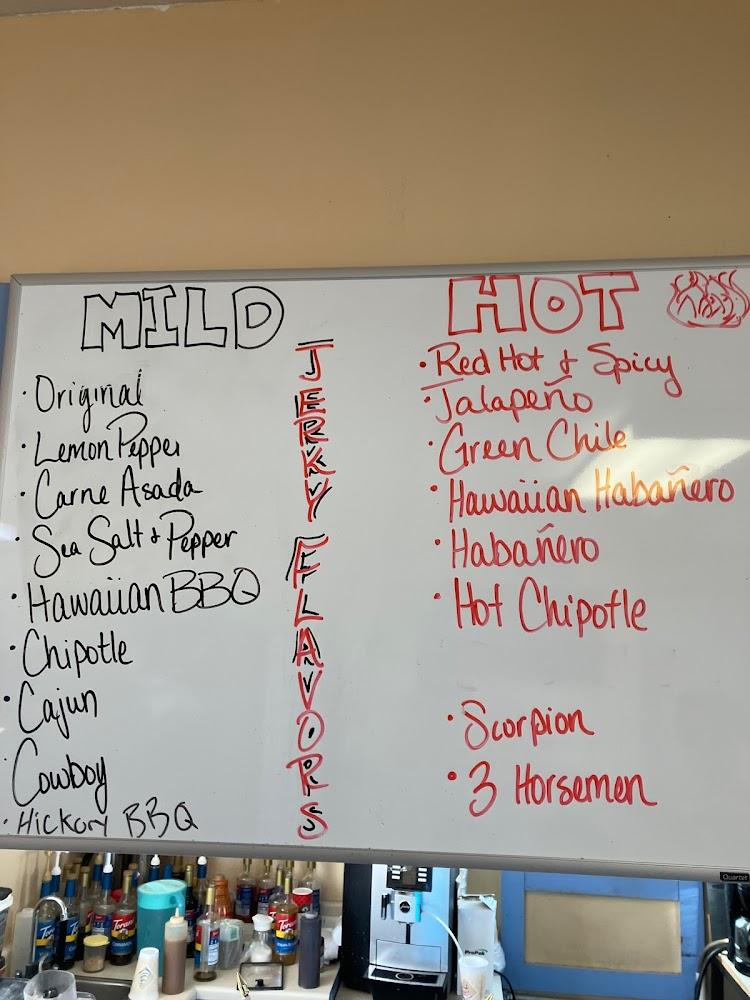 MILD
• Original
• Lemon Pepper
• Carne Asada
• Sea Salt & Pepper
• Hawaiian BBQ
• Chipotle
• Cajun
• Cowboy
• Hickory BBQ
JERKY FLAVORS
HOT
• Red Hot & Spicy
• Jalapeño
• Green Chile
• Hawaiian Habañero
• Habañero
• Hot Chipotle
• Scorpion
• 3 Horsemen
Quartet
Torani
Torani
ProPak